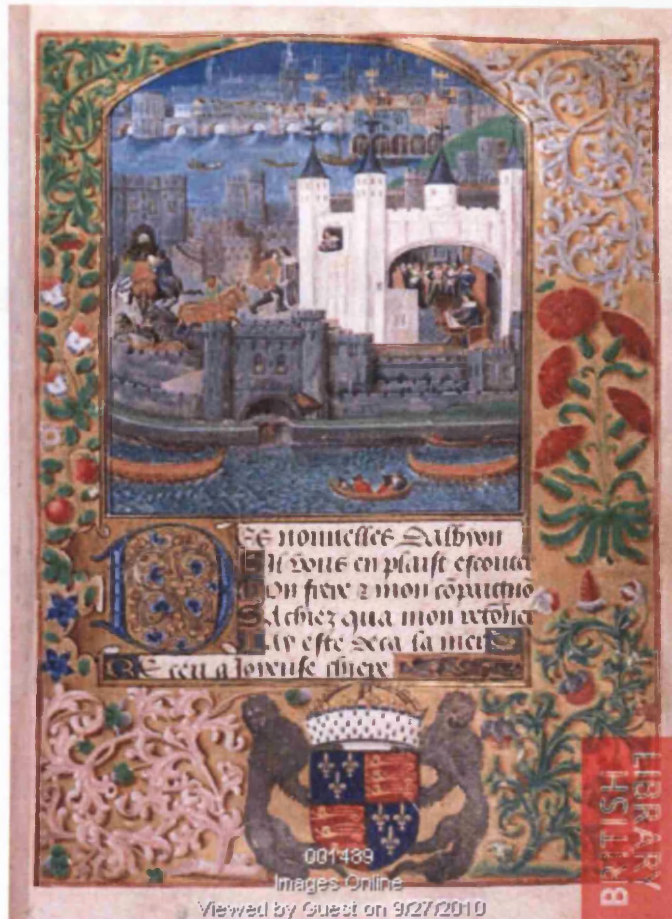 Des nouuelles Dalbyon
Sil vous en plaist escouter
Mon frere & mon cōpaignō
Sachiez qua mon retoῡer
Iay este deca la mer
Receu a Ioyeuse chiere
BRITISH
LIBRARY
001489
Images Online
Viewed by Guest on 9/27/2010